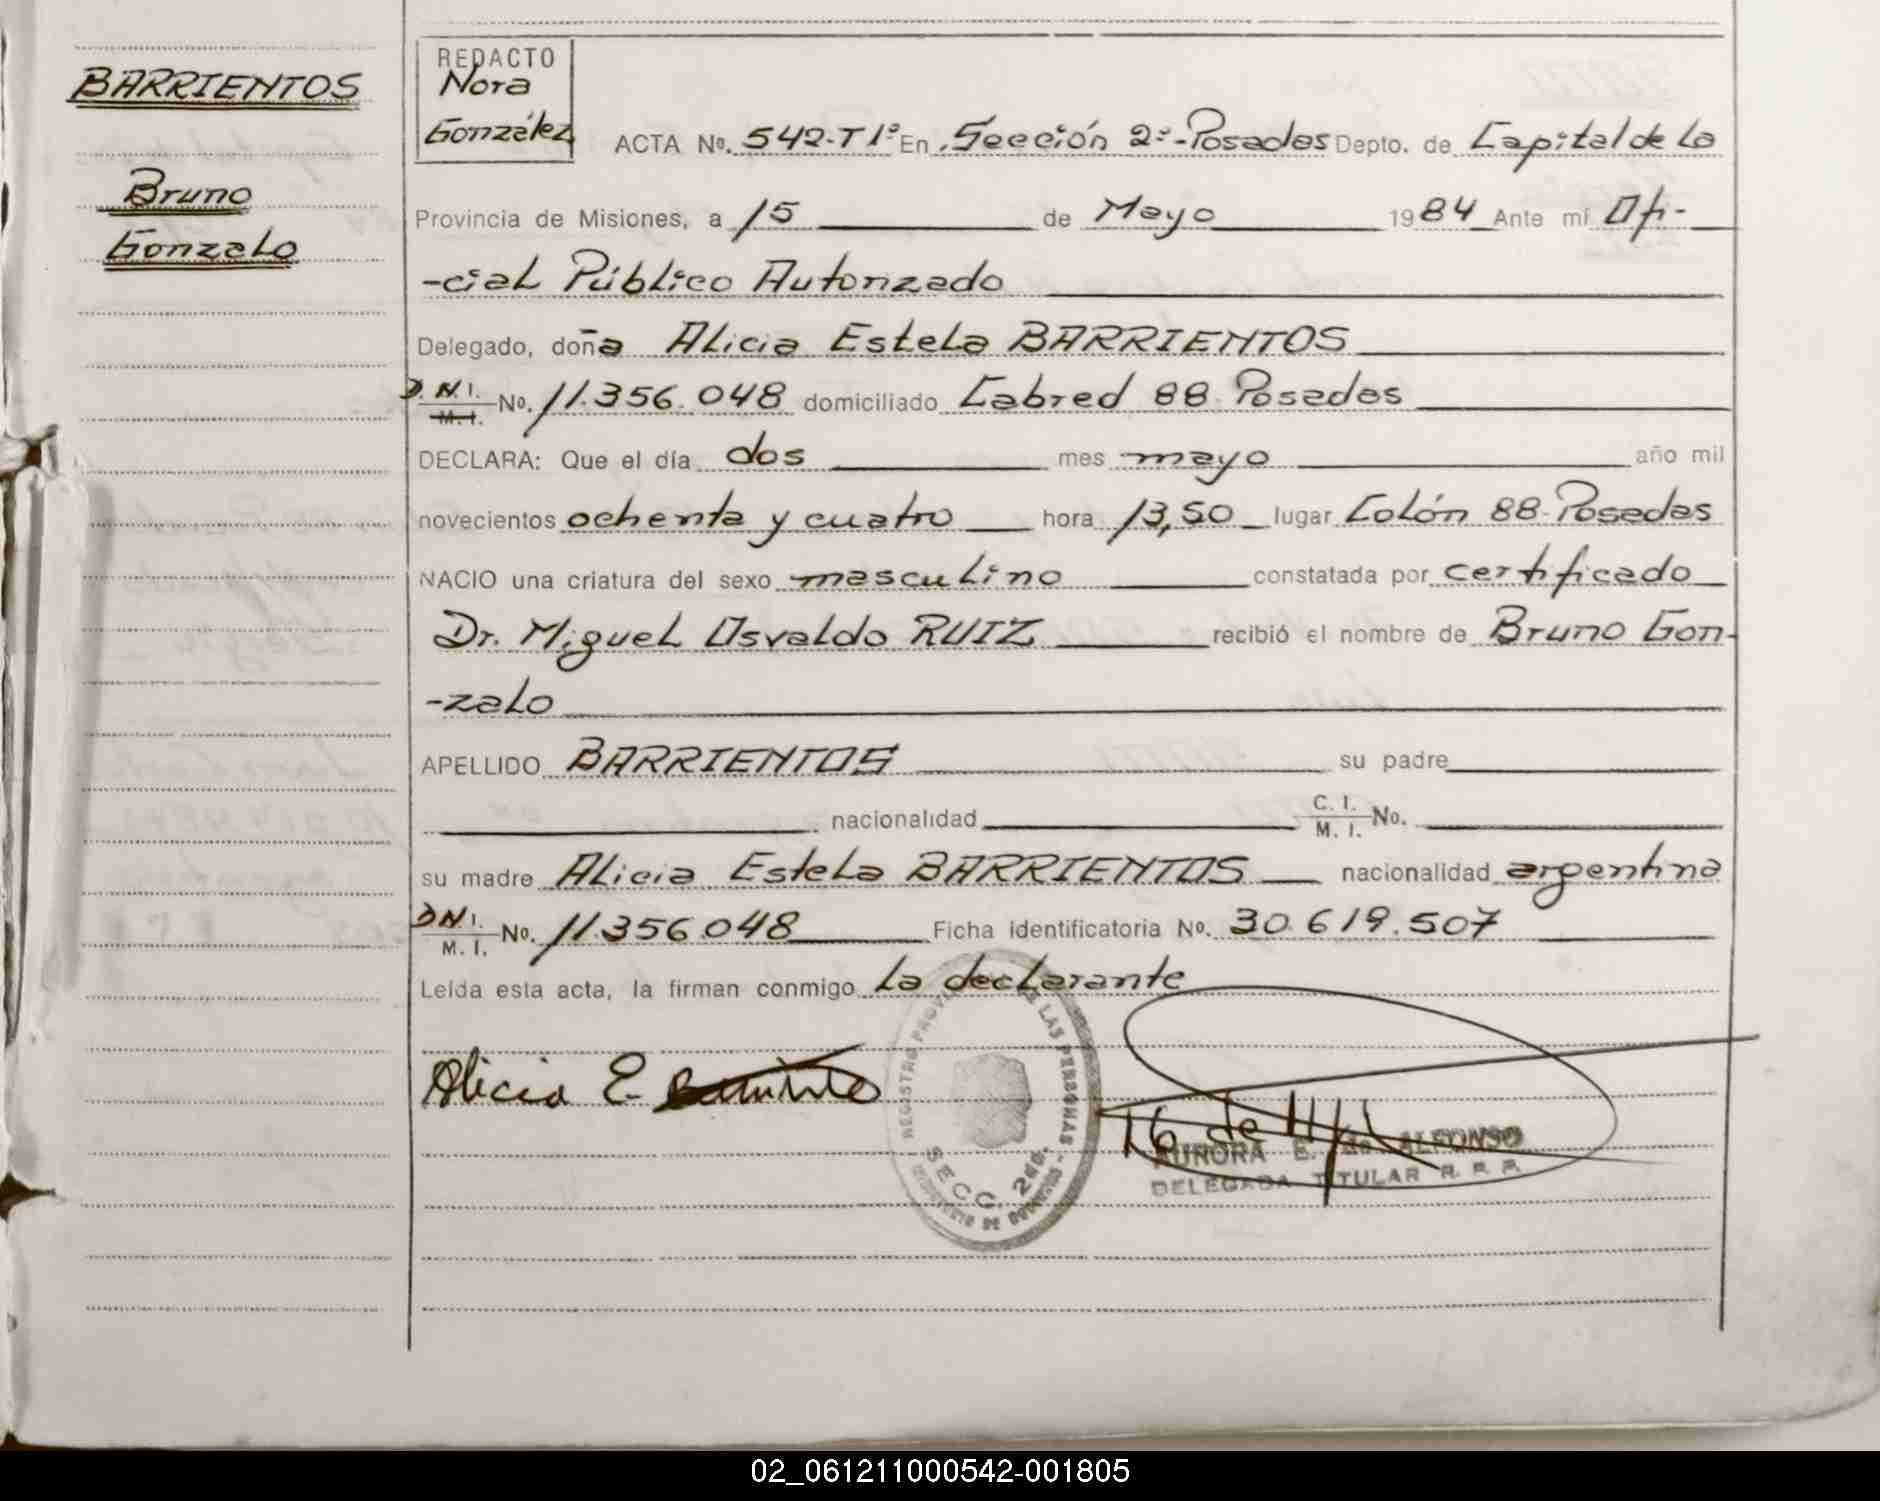 BARRIENTOS
Bruno
Gonzalo
REDACTO
Nora
González
ACTA No. 542-T1º En Sección 2º-Posadas Depto. de Capital de la
Provincia de Misiones, a 15 de Mayo 1984 Ante mí Ofi-
-cial Público Autorizado
Delegado, doña Alicia Estela BARRIENTOS
D.N.I. M.I. No. 11.356.048 domiciliado Cabred 88 Posadas
DECLARA: Que el día dos mes mayo año mil
novecientos ochenta y cuatro hora 13,50 lugar Colón 88-Posadas
NACIO una criatura del sexo masculino constatada por certificado
Dr. Miguel Osvaldo RUIZ recibió el nombre de Bruno Gon-
-zalo
APELLIDO BARRIENTOS su padre
nacionalidad C. I. M. I. No.
su madre Alicia Estela BARRIENTOS nacionalidad argentina
DNI. M. I. No. 11.356.048 Ficha identificatoria No. 30.619.507
Leída esta acta, la firman conmigo la declarante
Alicia E. Barrientos
REGISTRO LAS PERSONAS
SECC. 2da.
AURORA E. de ALFONSO
DELEGADA TITULAR R. P. P.
02_061211000542-001805